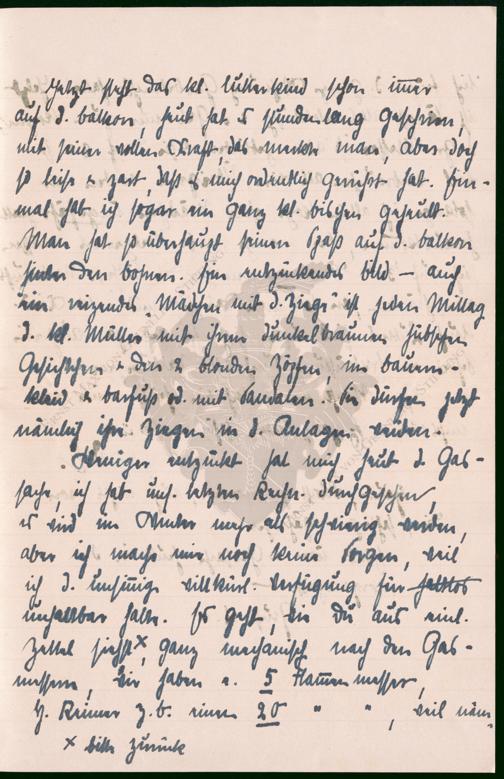 Jetzt steht das kl. Lutterkind schon im̅er
auf d. Balkon, heut hat es stundenlang geschrien,
mit seiner vollen Kraft, das merkte man, aber doch
so leise & zart, daß es mich ordentlich gerührt hat. Ein-
mal hab ich sogar ein ganz kl. bischen geheult.
Man hat so überhaupt seinen Spaß auf d. Balkon
hinter den Bohnen. Ein entzückendes Bild — auch
ein reizendes „Mädchen mit d. Ziege" ist jeden Mittag
d. kl. Müller mit ihrem dunkelbraunen hübschen
Gesichtchen & den 2 blonden Zöpfen, im Bauern-
kleid & barfuß od. mit Sandalen. Sie dürfen jetzt
nämlich ihre Ziegen in d. Anlagen weiden.
Weniger entzückt hat mich heut d. Gas-
sache, ich hab uns. letzten Rechn. durchgesehen,
es wird im Winter mehr als schwierig werden,
aber ich mache mir noch keine Sorgen, weil
ich d. unsin̅ige willkürl. Verfügung für
unhaltbar halte. Es geht, wie Du aus einl.
Zettel siehst x, ganz mechanisch nach den Gas-
messern, wir haben e. 5 Flam̅enmesser,
H. Reimer z.B. einen 20 " " , weil näm-
x bitte zurück